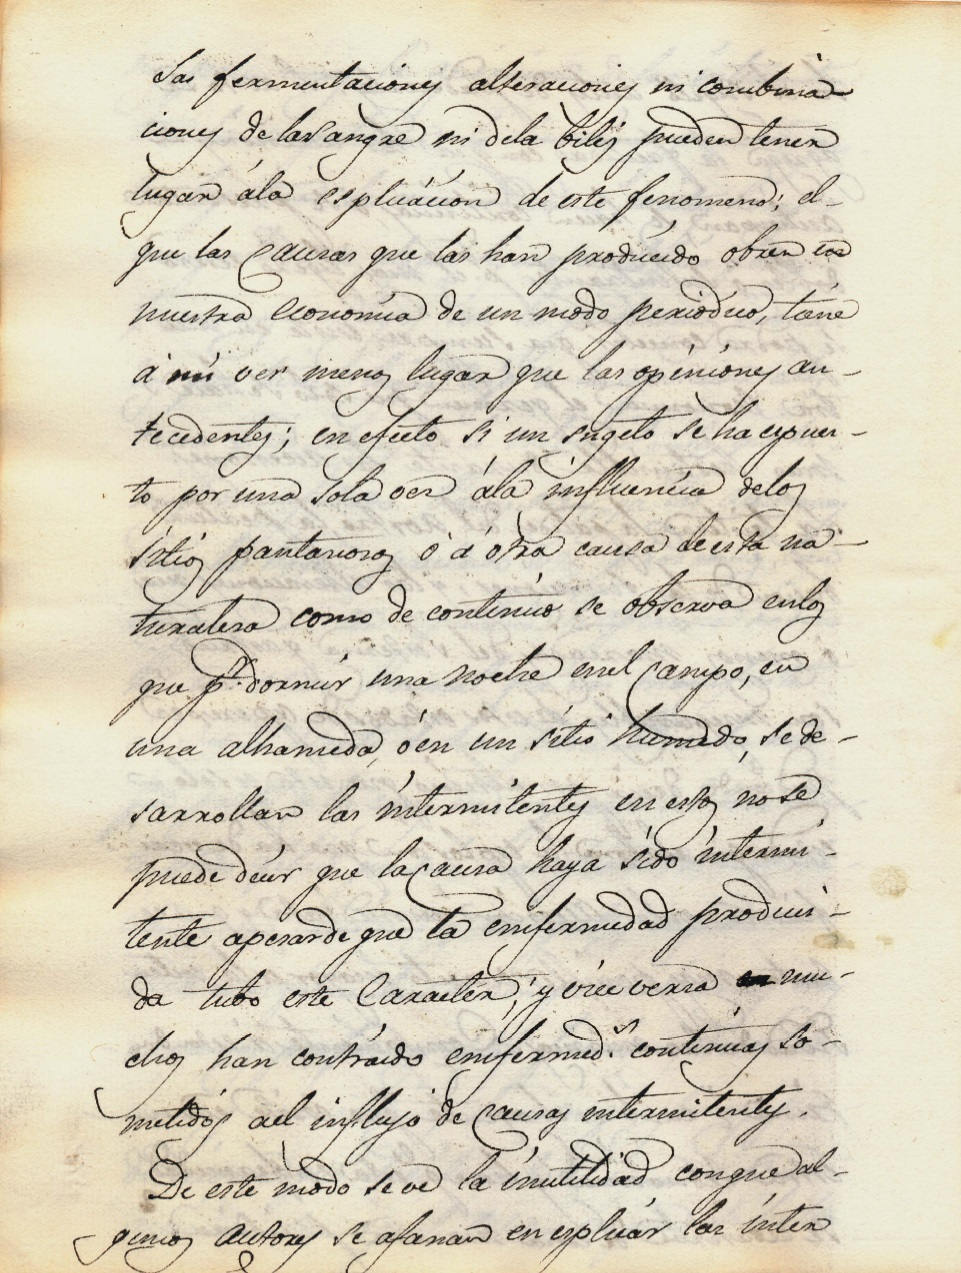 Las fermentaciones alteraciones ni combina-
ciones de la Sangre ni dela bilis pueden tener
lugar ála esplicácion de este fenomeno; el-
que las Causas que las han producido obren en
nuestra economía de un modo periodico, tiene
á mi ver menos lugar que las opiniones an-
tecedentes; en efecto si un sugeto se ha espues-
to por una sola vez ála influencia delos
sitios pantanosos ó á otra causa de esta na-
turaleza como de continuo se observa enlos
que pr. dormir una noche enel Campo, en
una alhameda, ó en un sitio humedo, se de-
sarrollan las intermitentes en estos no se
puede decir que la Causa haya sido intermi-
tente apesarde que la enfermedad produci-
da tubo este Carácter; y vice versa mu-
chos han contraido enfermeds. continuas so-
metidos ael influjo de Causas intermitentes.
De este modo se ve la inutilidad conque al-
gunos autores se afanan en esplicár las inter